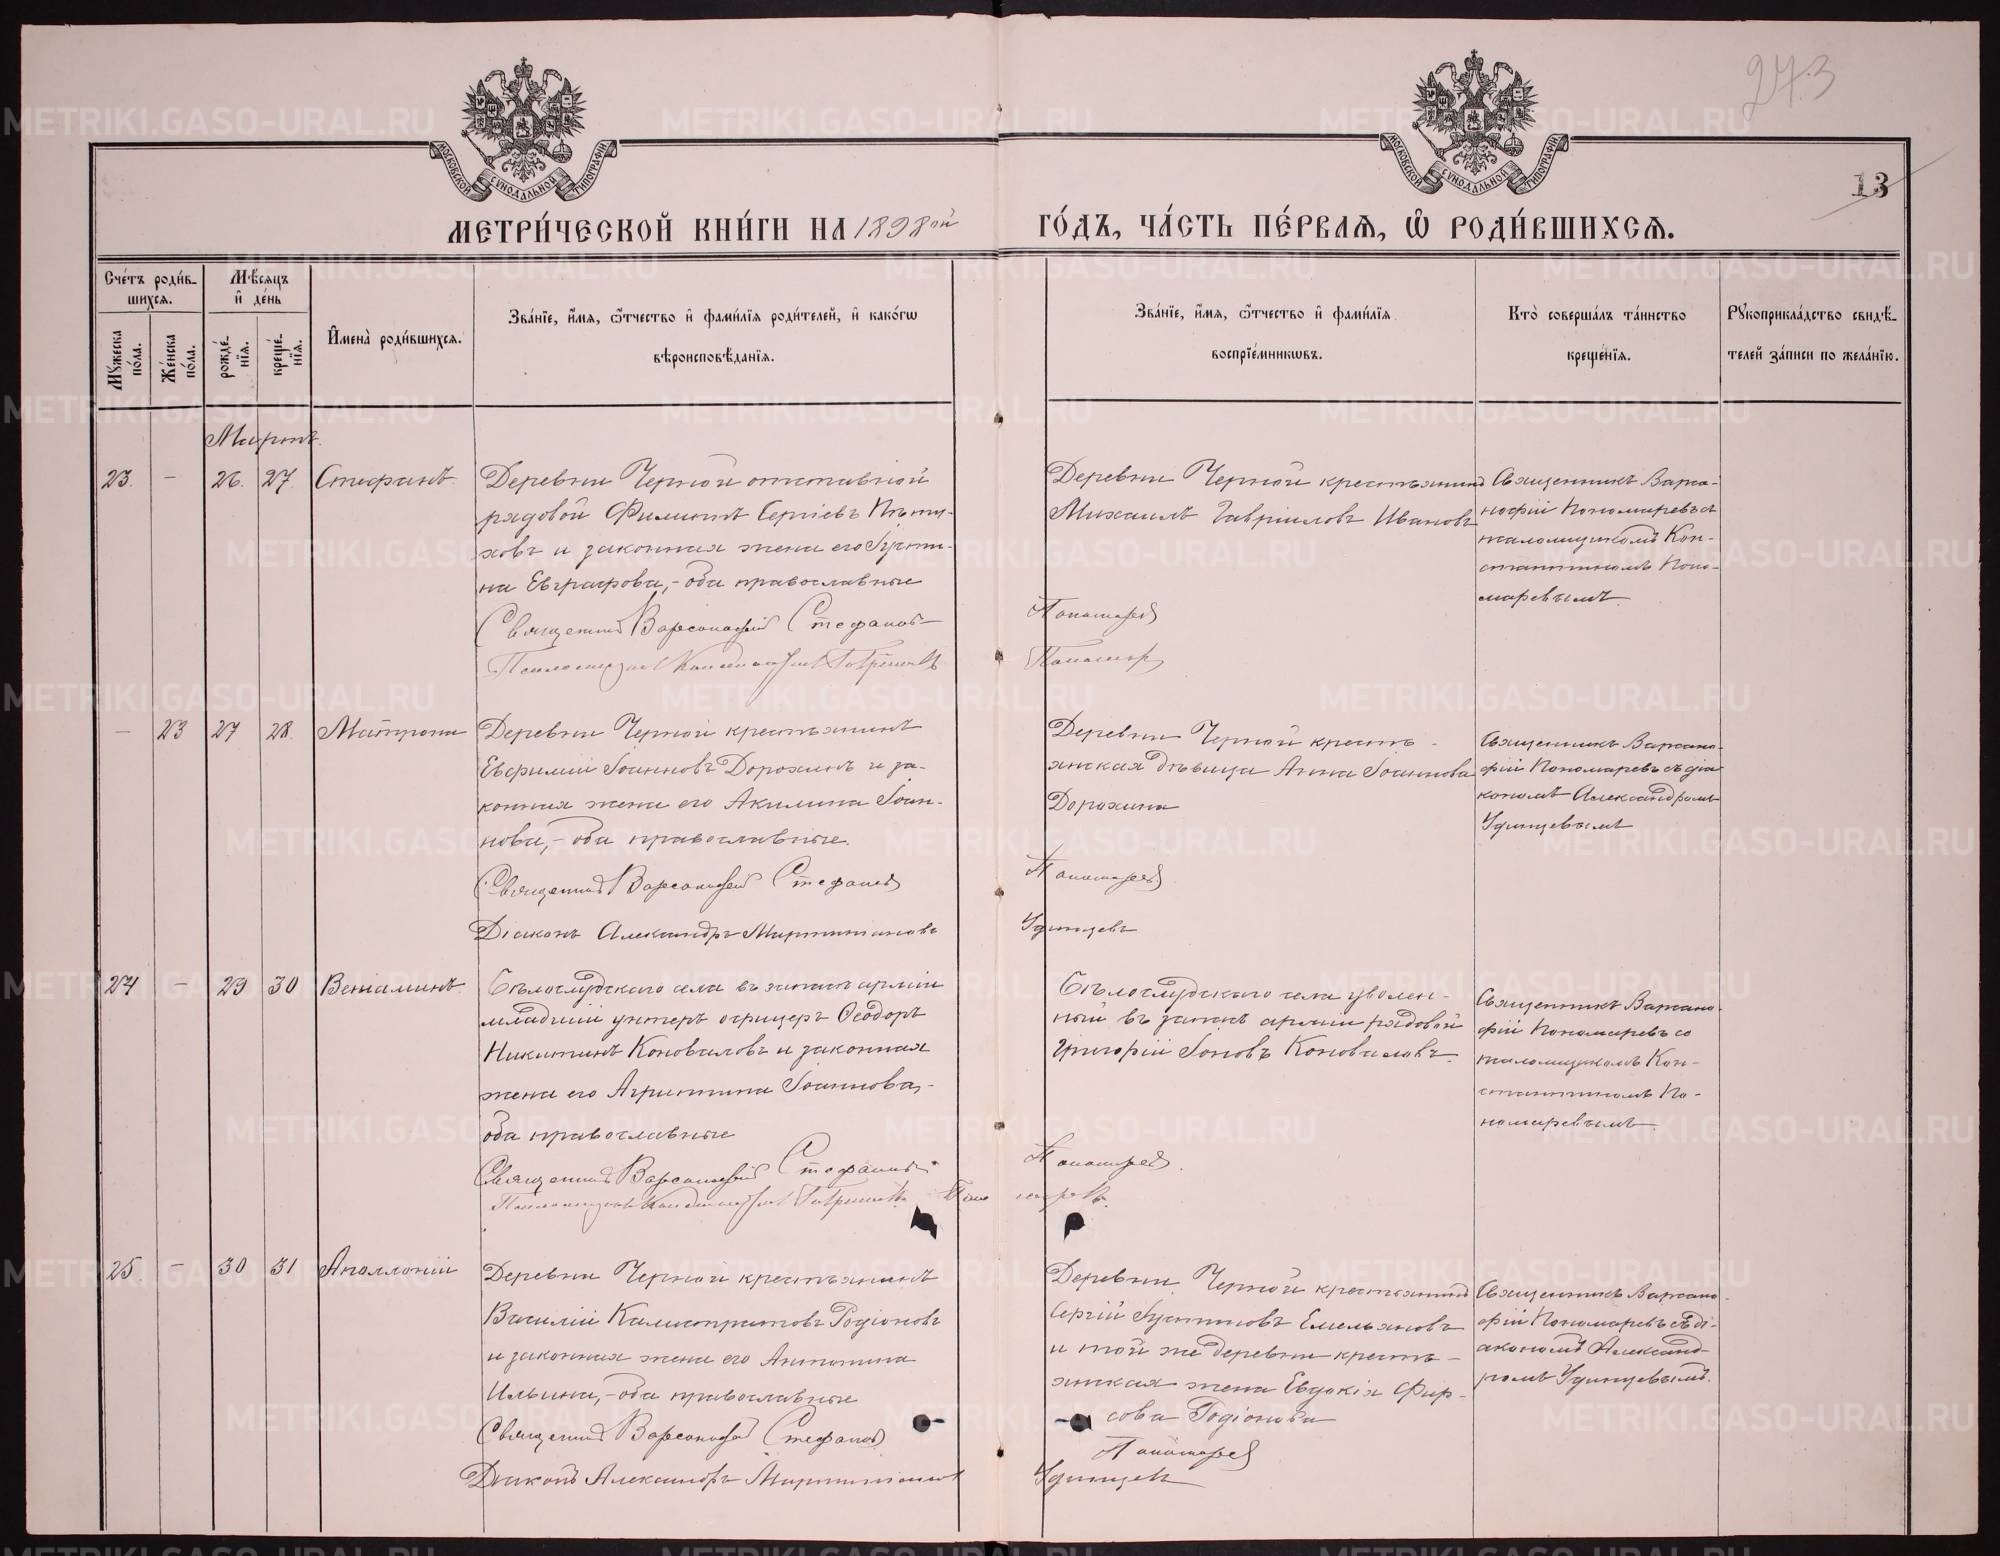 273
13
МОСКОВСКОЙ СѴНОДАЛЬНОЙ ТИПОГРАФІИ
МОСКОВСКОЙ СѴНОДАЛЬНОЙ ТИПОГРАФІИ
МЕТРИ́ЧЕСКОЙ КНИ́ГИ НА 1898ой ГО́ДЪ, ЧА́СТЬ ПЕ́РВАЯ, Ѡ РОДИ́ВШИХСЯ.
Сче́тъ роди́в-
шихся.
Мѣ́сяцъ
и де́нь
Му́жеска по́ла.
Же́нска по́ла.
рожде́-
нїя.
креще́-
нїя.
Имена̀ роди́вшихся.
Зва́нїе, и́мя, ѻ҆́тчество и фами́лїя роди́телей, и како́гѡ
вѣроисповѣ́данїя.
Зва́нїе, и́мя, ѻ҆́тчество и фами́лїя
воспрїе́мникѡвъ.
Кто̀ соверша́лъ та́инство
креще́нїя.
Рукоприкла́дство свидѣ́-
телей за́писи по жела́нїю.
Мартъ.
23. - 26. 27. Стефанъ.
Деревни Черной отставной
рядовой Филиппъ Сергіевъ Пѣту-
ховъ и законная жена его Іусти-
на Евграфова, - оба православные
Священник Варсанофій Стефанов Пономарев
Псаломщик Константин Гавриилов Пономар
Деревни Черной крестьянинъ
Михаилъ Гавріиловъ Ивановъ
Священникъ Варса-
нофій Пономаревъ съ
псаломщикомъ Кон-
стантиномъ Поно-
маревымъ.
- 23 27 28. Матрона
Деревни Черной крестьянинъ
Евфимій Іоанновъ Дорохинъ и за-
конная жена его Акилина Іоан-
нова, - оба православные.
Священник Варсанофій Стефанов Пономарев.
Діаконъ Александръ Мартиніановъ Удинцевъ
Деревни Черной кресть-
янская дѣвица Анна Іоаннова
Дорохина
Священникъ Варсано-
фій Пономаревъ съ діа-
кономъ Александромъ
Удинцевымъ
24 - 29 30 Веніаминъ.
Бѣлослудскаго села въ запасѣ арміи
младшій унтеръ офицеръ Ѳеодоръ
Никитинъ Коноваловъ и законная
жена его Агриппина Іоаннова, -
оба православные
Священник Варсанофій Стефанов Пономарев.
Псаломщик Константин Гавриилов Пономаревъ.
Бѣлослудскаго села уволен-
ный въ запасъ арміи рядовой
Григорій Іоновъ Коноваловъ.
Священникъ Варсано-
фій Пономаревъ со
псаломщикомъ Кон-
стантиномъ По-
номаревымъ.
25. - 30 31 Аполлоній
Деревни Черной крестьянинъ
Василій Каллистратовъ Родіоновъ
и законная жена его Антонина
Ильина, - оба православные
Священник Варсанофій Стефанов Пономарев
Діаконъ Александръ Мартиніанов Удинцев
Деревни Черной крестьянинъ
Сергій Іустиновъ Емельяновъ
и той же деревни кресть-
янская жена Евдокія Фир-
сова Родіонова
Священникъ Варсано-
фій Пономаревъ съ ді-
акономъ Александ-
ромъ Удинцевымъ.
METRIKI.GASO-URAL.RU